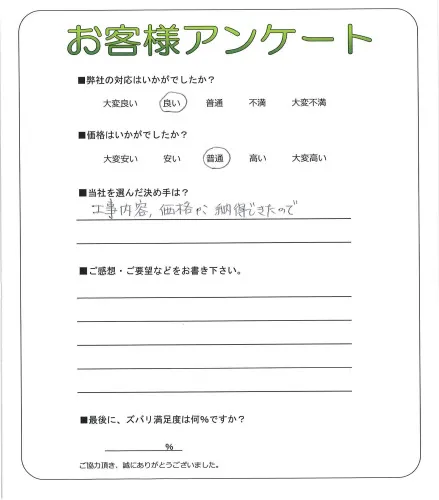 お客様アンケート
■弊社の対応はいかがでしたか?
大変良い 良い 普通 不満 大変不満
■価格はいかがでしたか?
大変安い 安い 普通 高い 大変高い
■当社を選んだ決め手は?
工事内容,価格が納得できたので
■ご感想・ご要望などをお書き下さい。
■最後に、ズバリ満足度は何%ですか?
%
ご協力頂き、誠にありがとうございました。